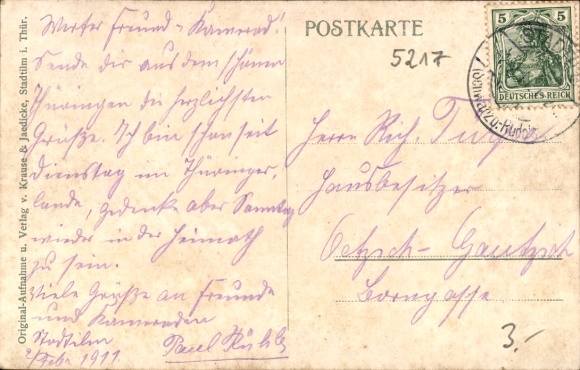 Werter Freund u. Kamerad!
Sende dir aus dem schönen
Thüringen die herzlichsten
Grüße. Ich bin schon seit
Dienstag im Thüringer-
lande, gedenke aber Sonntag
wieder in der Heimath
zu sein.
Viele Grüße an Freunde
und Kameraden
Stadtilm
Febr. 1911. Paul
POSTKARTE
5217
5 5
DEUTSCHES REICH
Herrn Rich.
Hausbesitzer
Oetzsch-Gautzsch
Borngasse
3.-
Original-Aufnahme u. Verlag v. Krause & Jaedicke, Stadtilm i. Thür.